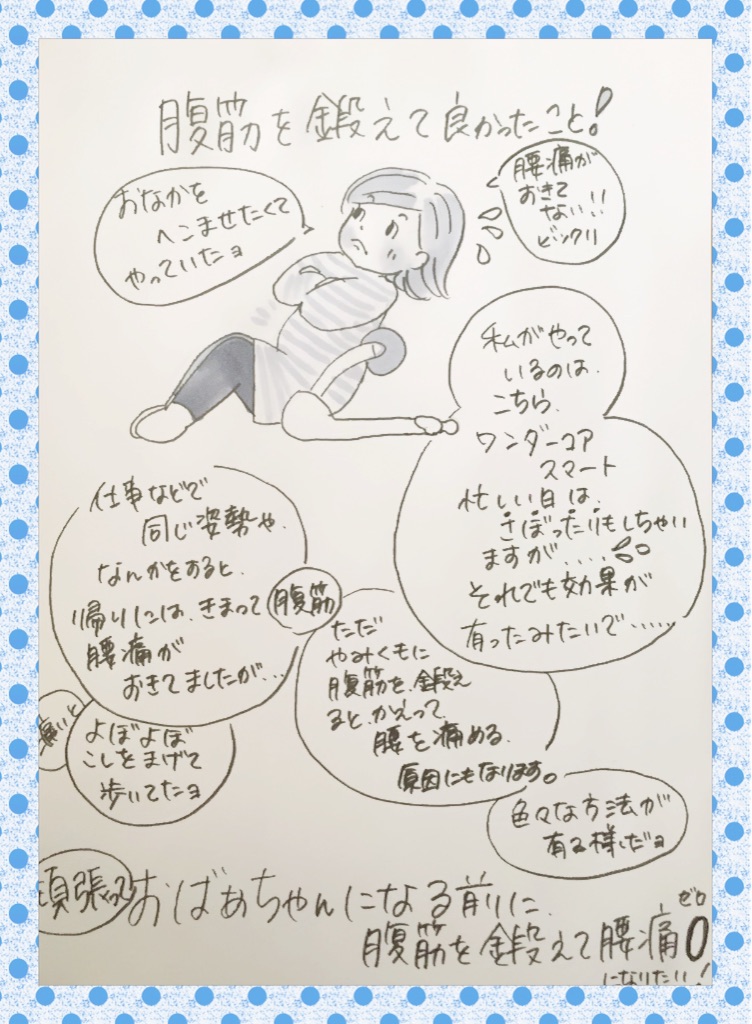 腹筋を鍛えて良かったこと!
おなかを
へこませたくて
やっていたヨ
腰痛が
おきて
ない!!
ビックリ
私がやって
いるのは、
こちら、
ワンダーコア
スマート
忙しい日は、
さぼったりもしちゃい
ますが....
それでも効果が
有ったみたいで.....
仕事などで
同じ姿勢や、
なんかをすると、
帰りには、きまって
腰痛が
おきてましたが...
腹筋
ただ
やみくもに
腹筋を、鍛え
ると、かえって、
腰を痛める、
原因にもなります。
よぼよぼ
こしをまげて
歩いてたヨ
色々な方法が
有る様だヨ
頑張って
おばぁちゃんになる前に、
腹筋を鍛えて腰痛0
ゼロ
になりたい!